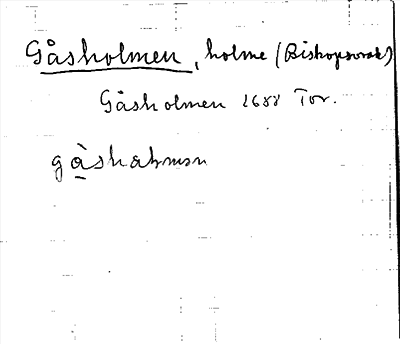 Gåsholmen, holme (Biskopsvrak)
Gåsholmen 1688 Tor.
gåshəlmən